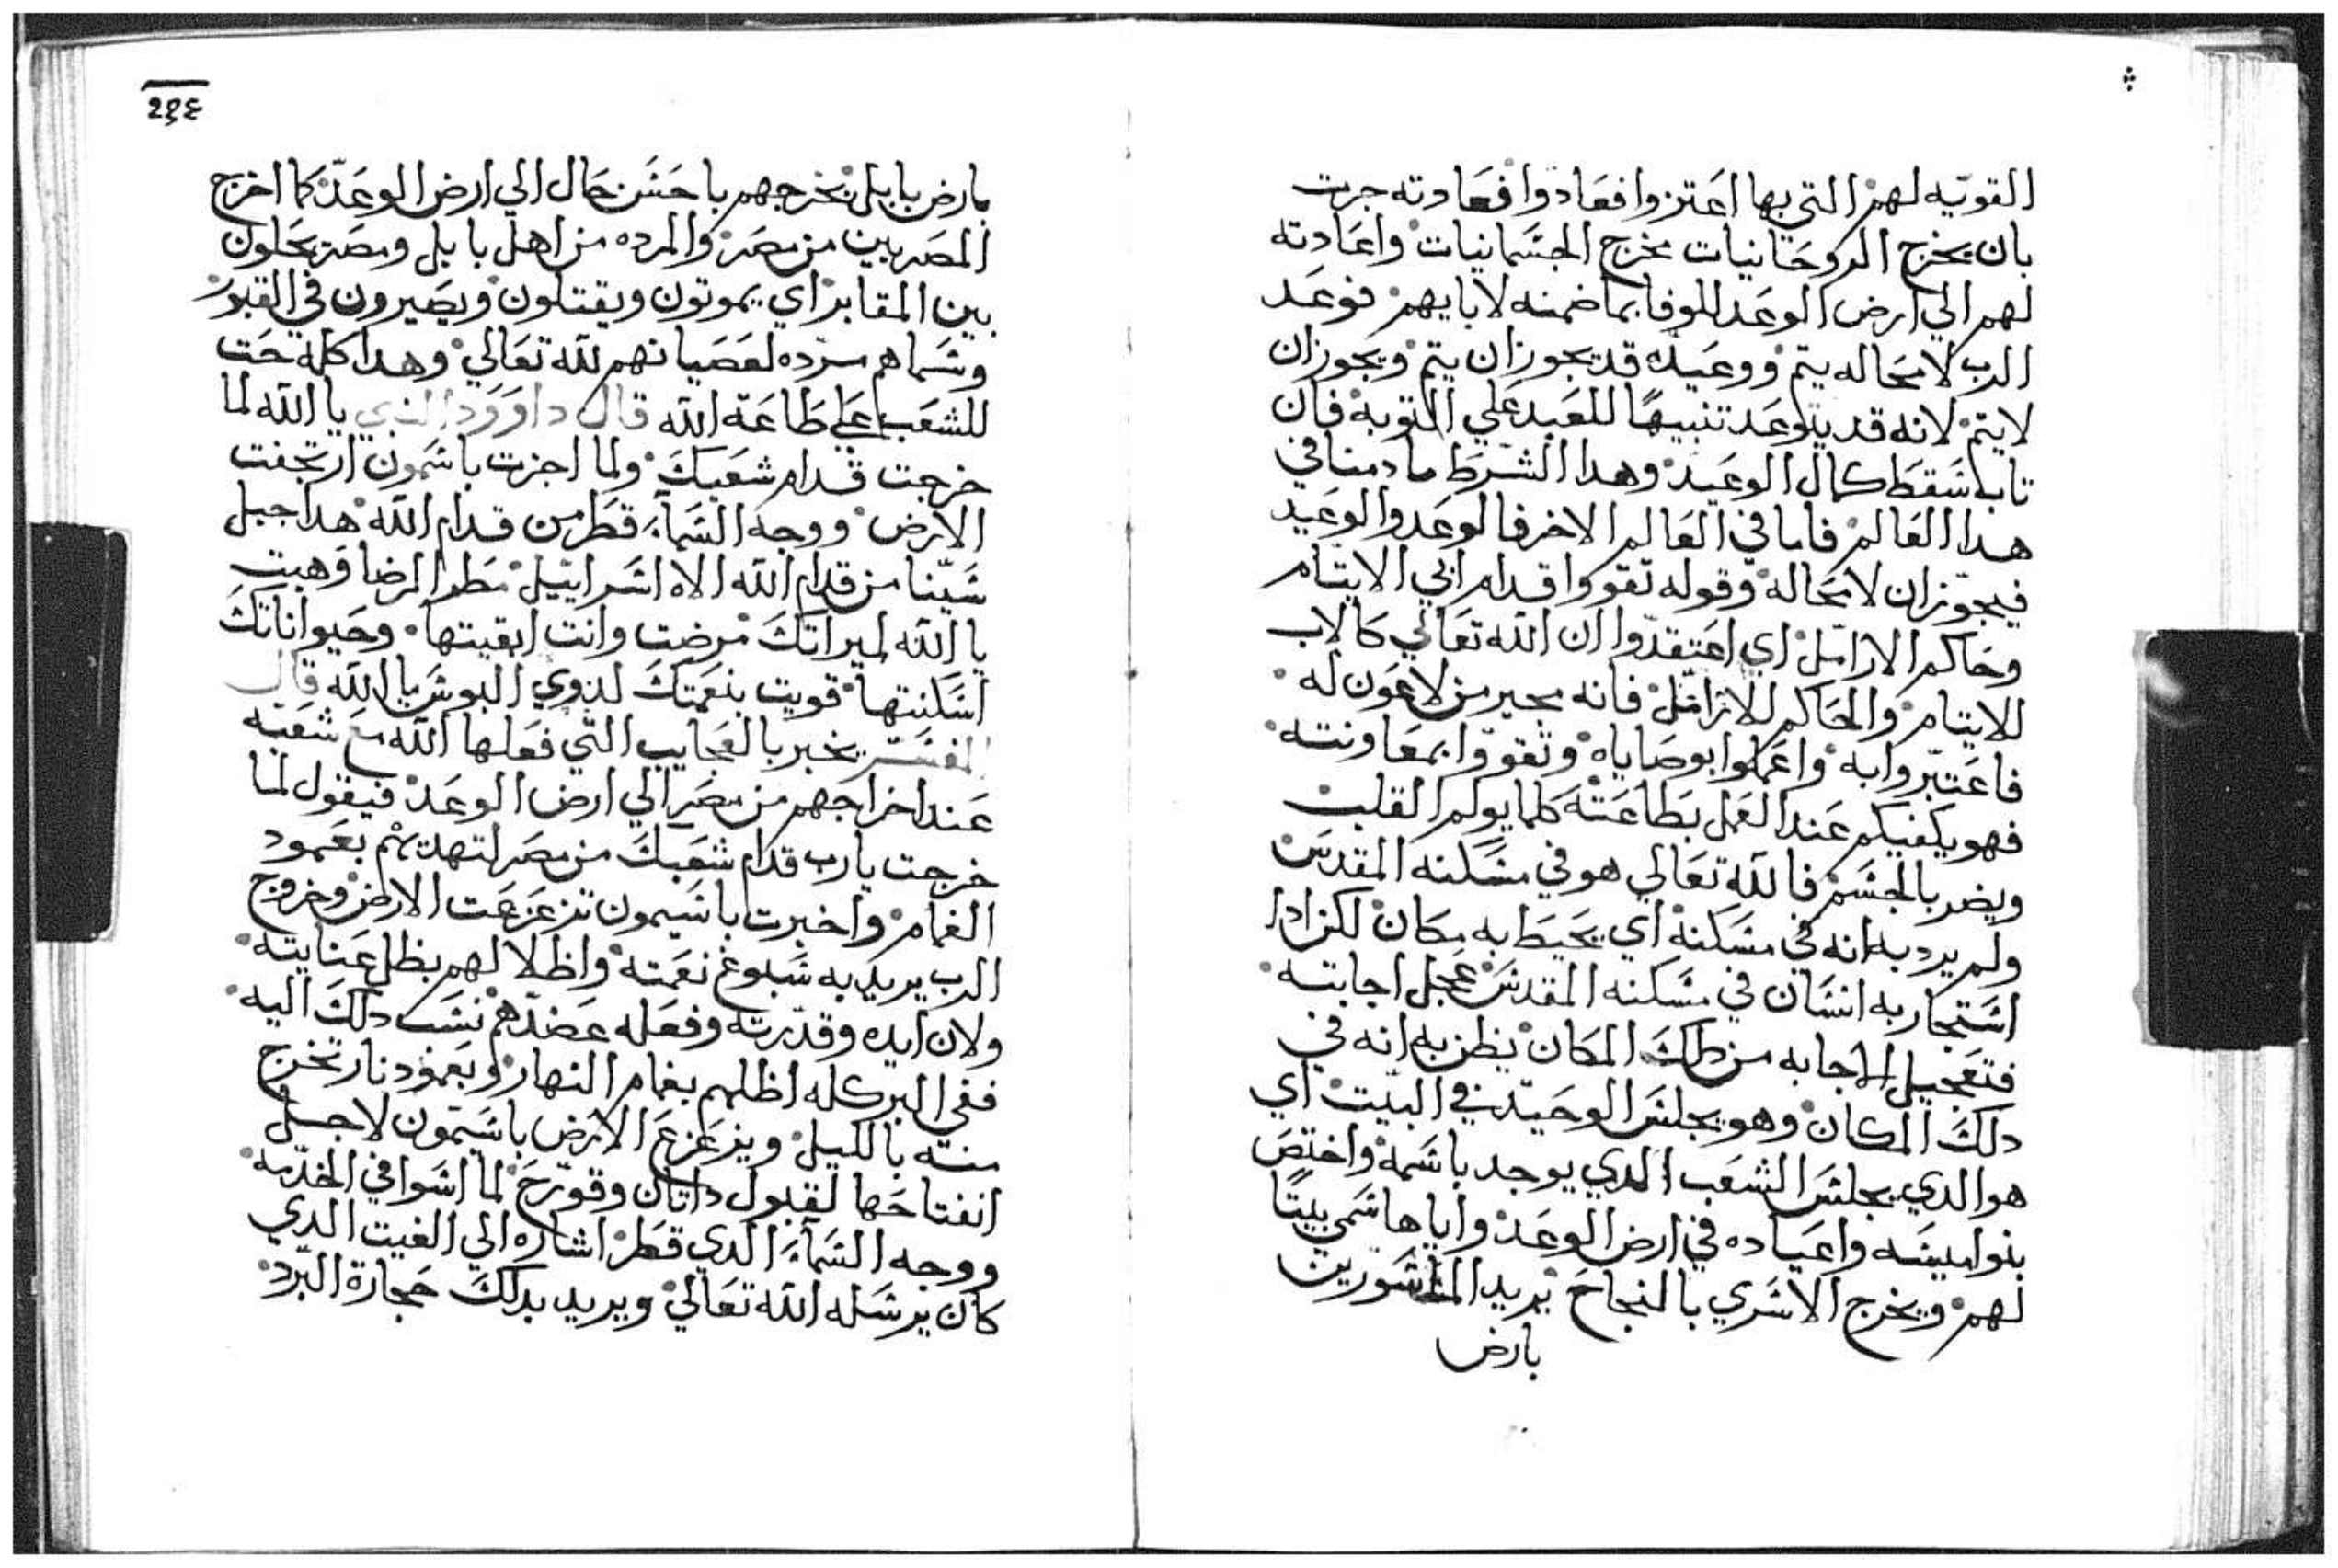 القويه لهم التي بها اعتزوا فعادوا فعادته جرت
بان يخرج الروحانيات مخرج الجسمانيات واعادته
لهم الي ارض الوعد للوفا بما ضمنه لابايهم فوعد
الرب لا محاله يتم ووعيده قد يجوز ان يتم ويجوز ان
لا يتم لانه قد يتوعد تنبيهًا للعبد علي التوبة فان
تاب سقط كمال الوعيد وهدا الشرط ما دمنا في
هدا العالم فاما في العالم الاخر فالوعد والوعيد
فيجوزان لا محاله وقوله تقووا قدام ابي الايتام
وحاكم الارامل اي اعتقدوا ان الله تعالي كالاب
للايتام والحاكم للارامل فانه مجير من لا عون له
فاعتبروا به واعملوا بوصاياه وتقووا بمعاونته
فهو يكفيكم عند العمل بطاعته كلما يولم القلب
ويضر بالجسم فالله تعالي هو في مسكنه المقدس
ولم يرد به انه في مسكنه اي يحيط به مكان لكن ادا
استجار به انسان في مسكنه المقدس عجل اجابته
فتعجيل الاجابه من دلك المكان يظن به انه في
دلك المكان وهو يجلس الوحيد في البيت اي
هو الدي يجلس الشعب الدي يوجد باسمه واختص
بنواميسه واعياده في ارض الوعد واياها سمي بيتًا
لهم ويخرج الاسري بالنجاح يريد الماسورين
بارض
٢٩٤
بارض بابل يخرجهم باحسن حال الي ارض الوعد كما اخرج
المصريين من مصر والمرده من اهل بابل ومصر يحلون
بين المقابر اي يموتون ويقتلون ويصيرون في القبور
وسماهم مرده لعصيانهم لله تعالي وهدا كله حت
للشعب علي طاعة الله قال داوود النبي يا الله لما
خرجت قدام شعبك ولما اجزت باسمون ارتجفت
الارض ووجه السماء قطر من قدام الله هدا جبل
سينا من قدام الله الاه اسراييل مطر الرضا وهبت
يا الله لميراتك مرضت وانت ابقيتها وحيواناتك
اسكنتها قويت بنعمتك لدوي البوس يا الله قال
المفسر يخبر بالعجايب التي فعلها الله مع شعبه
عند اخراجهم من مصر الي ارض الوعد فيقول لما
خرجت يا رب قدام شعبك من مصر لتهديهم بعمود
الغمام واخبرت باسيمون تزعزعت الارض وخروج
الرب يريد به سبوغ نعمته واظلالهم بظل عنايته
ولان ايده وقدرته وفعله عضدهم نسب دلك اليه
ففي البر كله اظلهم بغمام النهار وبعمود نار تخرج
منه بالليل ويزعزع الارض باسيمون لاجل
انفتاحها لقبول داتان وقورح لما اسوا في الخدمه
ووجه السماء الدي قطر اشاره الي الغيت الدي
كان يرسله الله تعالي ويريد بدلك حجارة البرد